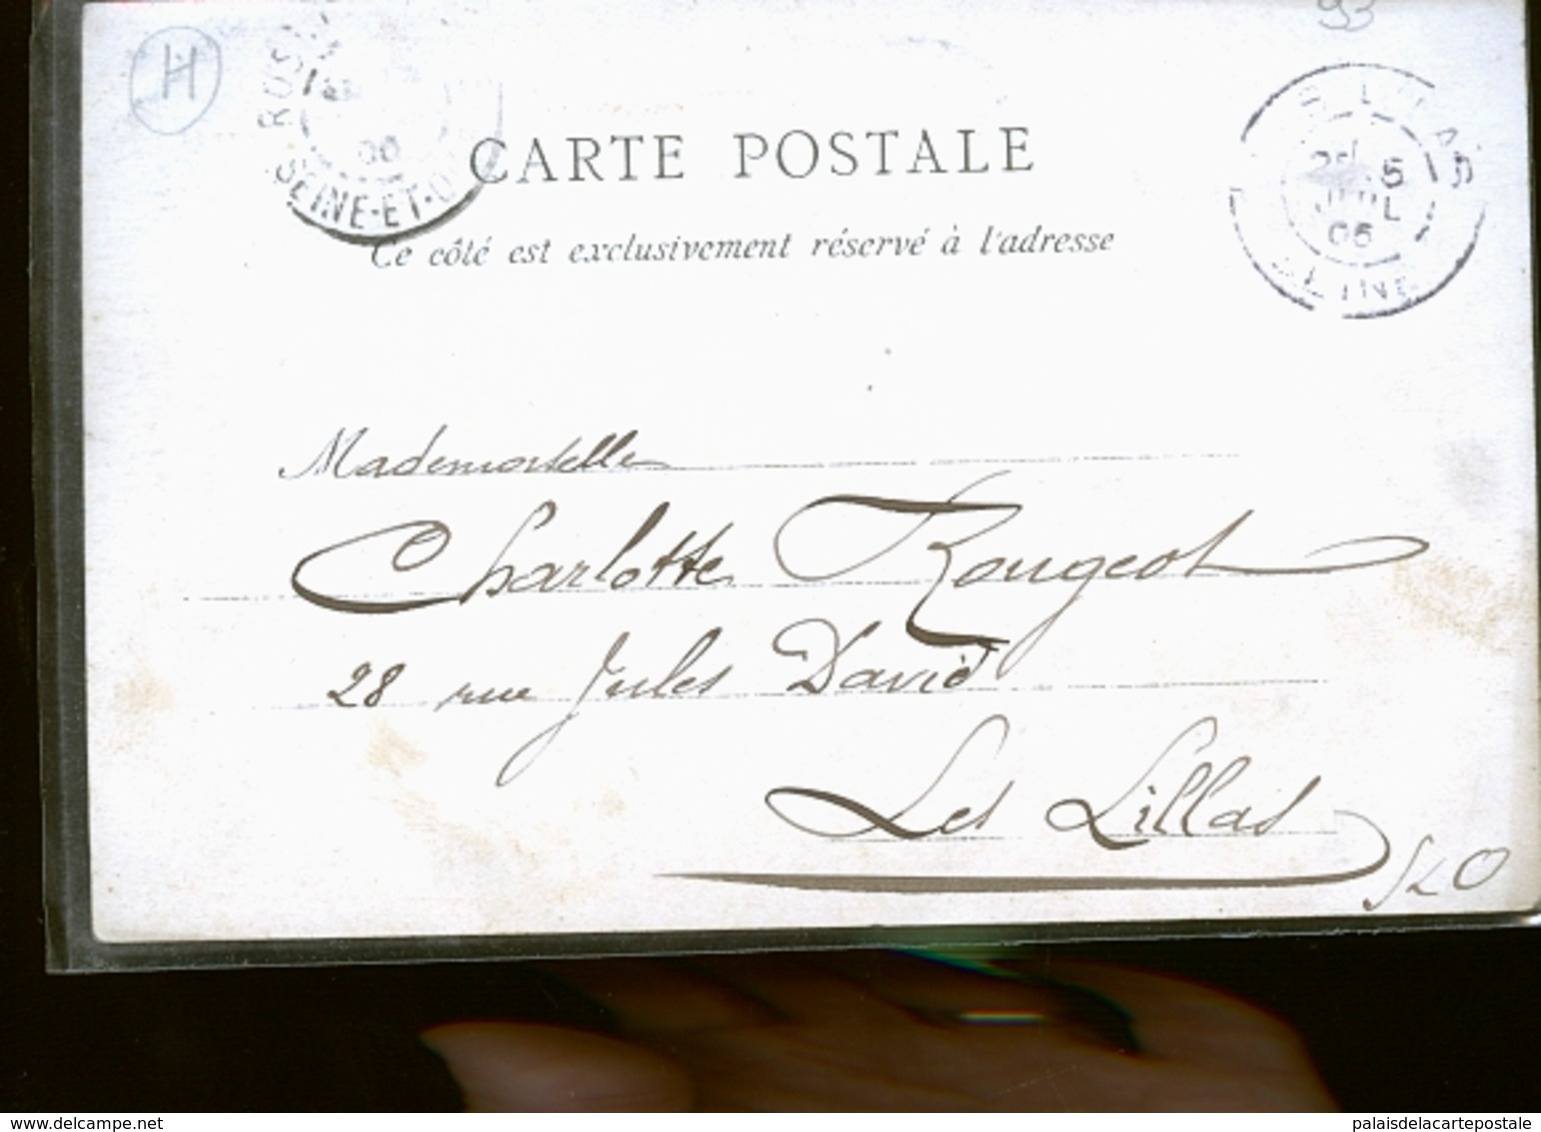 93
H
SEINE-ET-O
CARTE POSTALE
Ce côté est exclusivement réservé à l'adresse
5
JUIL
05
SEINE
Mademoiselle
Charlotte Rougeot
28 rue Jules David
Les Lillas
www.delcampe.net
palaisdelacartepostale